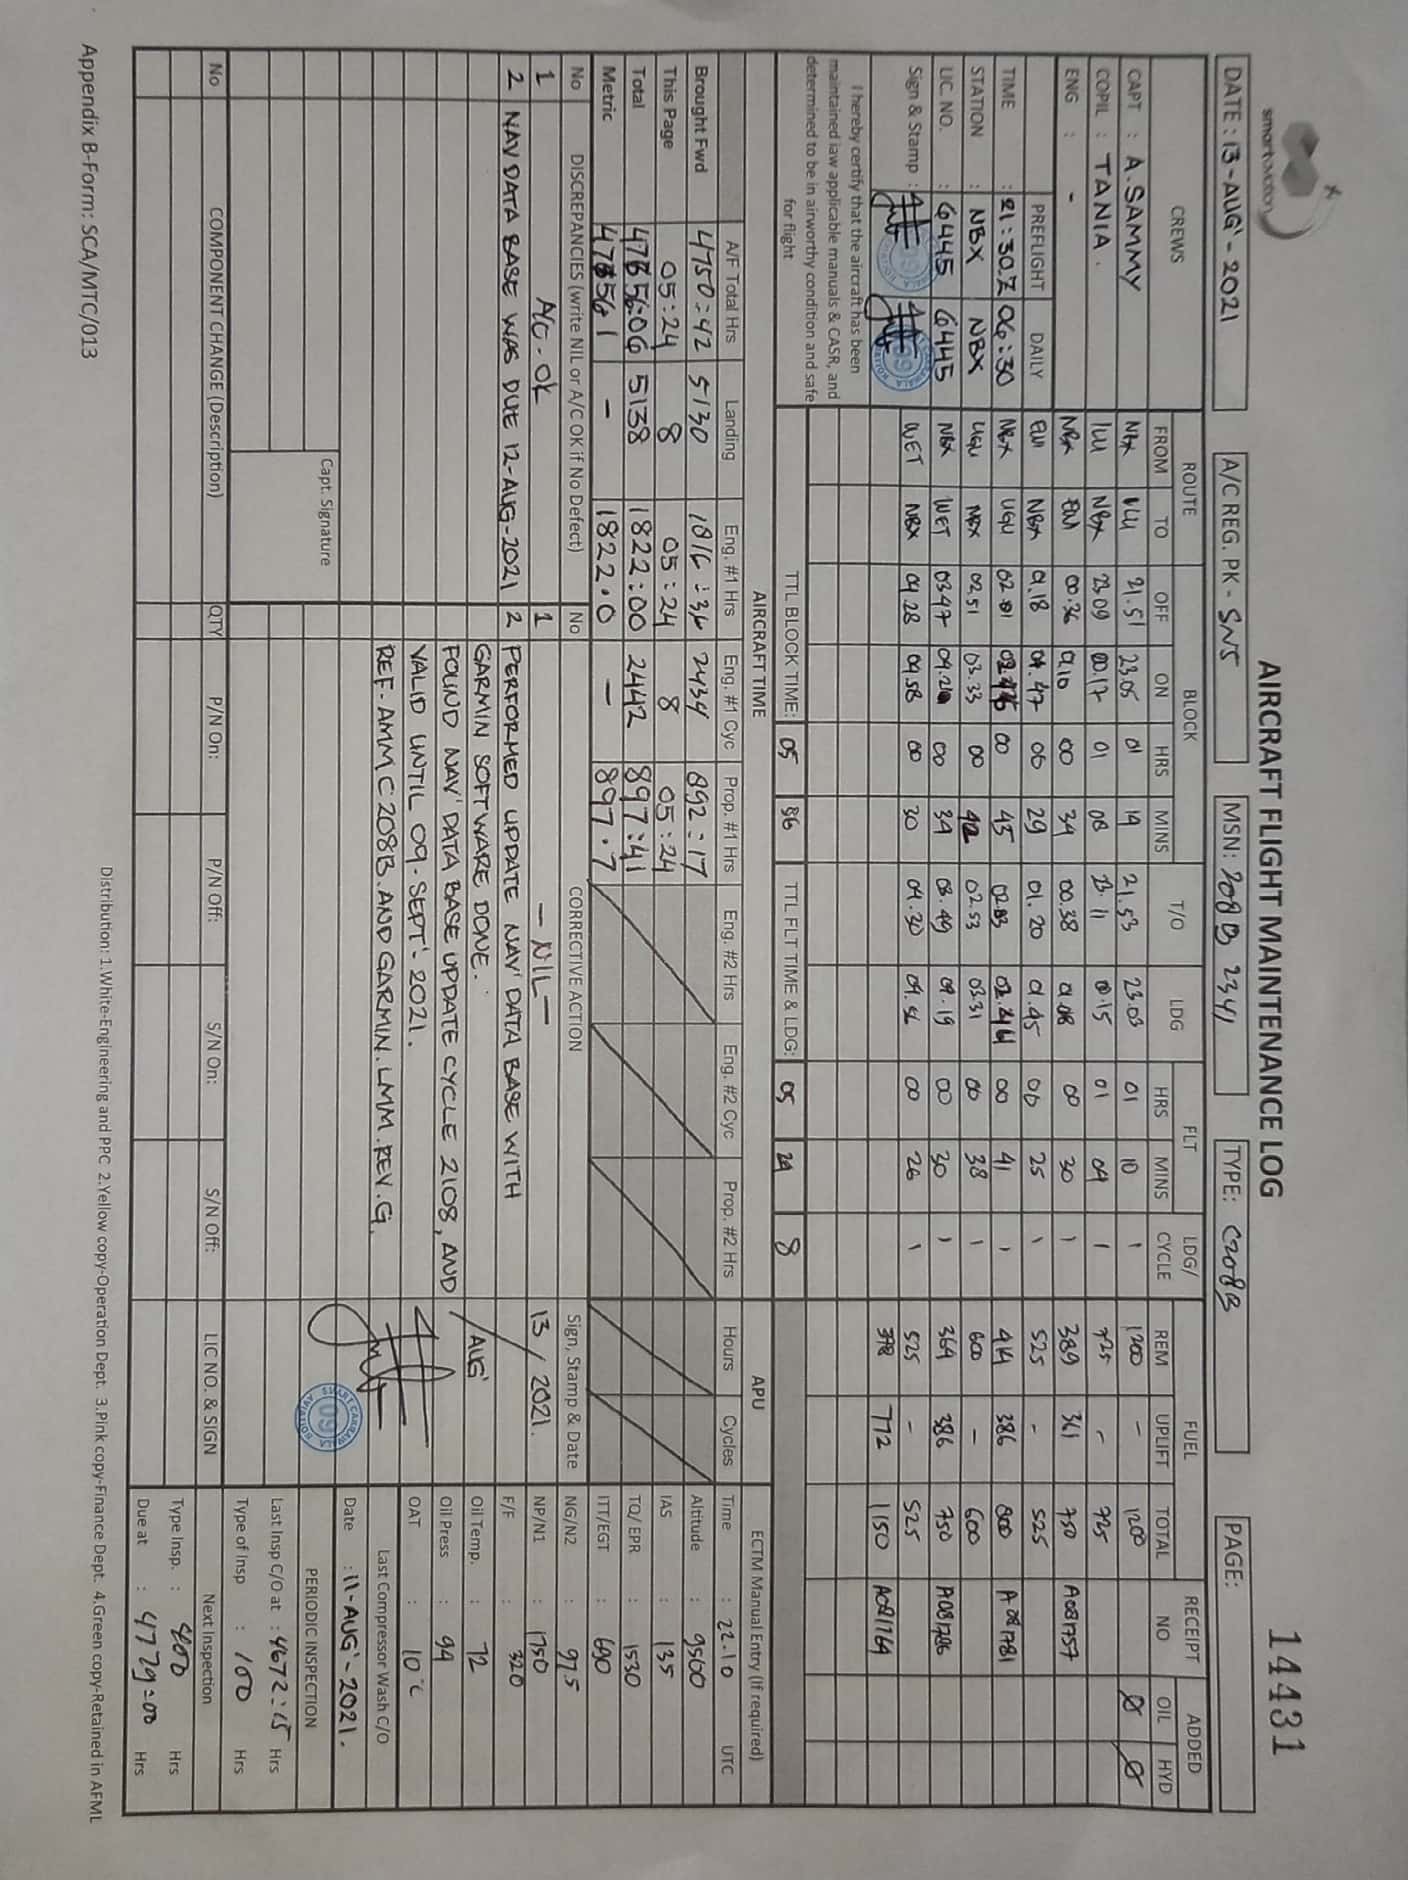 smart aviation
AIRCRAFT FLIGHT MAINTENANCE LOG
14431
DATE : 13-AUG'-2021 A/C REG. PK - SNS MSN: 208B 2341 TYPE: C208B PAGE:
CREWS ROUTE BLOCK T/O LDG FLT LDG/ CYCLE FUEL RECEIPT NO ADDED
FROM TO OFF ON HRS MINS HRS MINS REM UPLIFT TOTAL OIL HYD
CAPT : A. SAMMY NBX ILU 21.51 23.05 01 14 21.53 23.03 01 10 1 1200 - 1200 Ø Ø
COPIL : TANIA. ILU NBX 23.09 00.17 01 08 23.11 00.15 01 04 1 725 - 725
ENG : - NBX EWI 00.36 01.10 00 34 00.38 01.08 00 30 1 389 361 750 A081757
PREFLIGHT DAILY EWI NBX 01.18 01.47 00 29 01.20 01.45 00 25 1 525 - 525
TIME : 21:30.Z 06:30 NBX UGU 02.01 02.46 00 45 02.03 02.44 00 41 1 414 386 800 A081781
STATION : NBX NBX UGU NBX 02.51 03.33 00 42 02.53 03.31 00 38 1 600 - 600
LIC. NO. : 6445 6445 NBX WET 03.47 04.21 00 34 03.49 04.19 00 30 1 364 386 750 A081786
Sign & Stamp : WET NBX 04.28 04.58 00 30 04.30 04.56 00 26 1 525 - 525
378 772 1150 A081764
I hereby certify that the aircraft has been
maintained iaw applicable manuals & CASR, and
determined to be in airworthy condition and safe
for flight
TTL BLOCK TIME: 05 36 TTL FLT TIME & LDG: 05 24 8
AIRCRAFT TIME APU ECTM Manual Entry (If required)
A/F Total Hrs Landing Eng. #1 Hrs Eng. #1 Cyc Prop. #1 Hrs Eng. #2 Hrs Eng. #2 Cyc Prop. #2 Hrs Hours Cycles Time : 22.10 UTC
Brought Fwd 4750:42 5130 1816:36 2434 892:17 Altitude : 9500
This Page 05:24 8 05:24 8 05:24 IAS : 135
Total 4756:06 5138 1822:00 2442 897:41 TQ/ EPR : 1530
Metric 4756.1 - 1822.0 - 897.7 ITT/EGT : 690
No DISCREPANCIES (write NIL or A/C OK if No Defect) No CORRECTIVE ACTION Sign, Stamp & Date NG/N2 : 97.5
1 A/C - OK 1 - NIL - 13 / 2021. NP/N1 : 1750
2 NAV DATA BASE WAS DUE 12-AUG-2021 2 PERFORMED UPDATE NAV' DATA BASE WITH AUG' F/F : 320
GARMIN SOFTWARE DONE. Oil Temp. : 72
FOUND NAV' DATA BASE UPDATE CYCLE 2108, AND Oil Press : 94
VALID UNTIL 09-SEPT'-2021. OAT : 10°C
REF-AMM C208B. AND GARMIN. LMM. REV. G. Last Compressor Wash C/O
Date : 11-AUG'-2021.
Capt. Signature
PERIODIC INSPECTION
Last Insp C/O at : 4672:15 Hrs
Type of Insp : 100 Hrs
No COMPONENT CHANGE (Description) QTY P/N On: P/N Off: S/N On: S/N Off: LIC NO. & SIGN Next Inspection
Type Insp. : 400 Hrs
Due at : 4779:00 Hrs
Distribution: 1.White-Engineering and PPC 2.Yellow copy-Operation Dept. 3.Pink copy-Finance Dept. 4.Green copy-Retained in AFML
Appendix B-Form: SCA/MTC/013